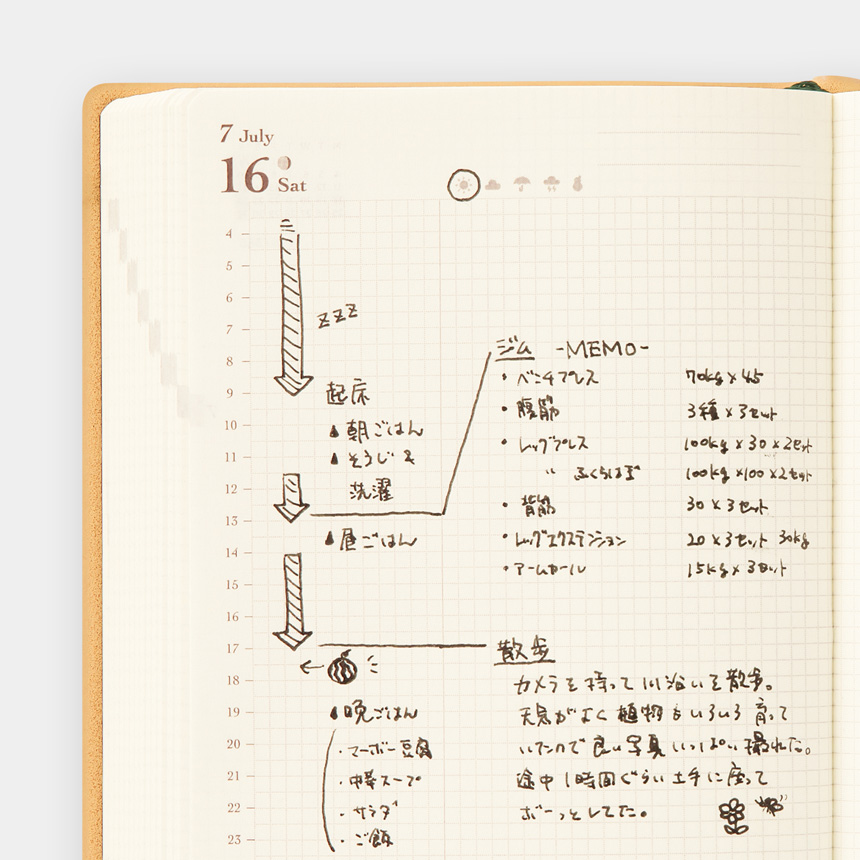 7 July
16 Sat
4
5
6
7
8
9
10
11
12
13
14
15
16
17
18
19
20
21
22
23
zzz
起床
朝ごはん
そうじ &
洗濯
昼ごはん
晩ごはん
・マーボー豆腐
・中華スープ
・サラダ
・ご飯
ジム -MEMO-
・ベンチプレス 70kg×45
・腹筋 3種×3セット
・レッグプレス 100kg×30×2セット
〃 ふくらはぎ 100kg×100×2セット
・背筋 30×3セット
・レッグエクステンション 20×3セット 30kg
・アームカール 15kg×3セット
散歩
カメラを持って川沿いを散歩。
天気がよく植物もいろいろ育って
いたので良い写真いっぱい撮れた。
途中1時間ぐらい土手に座って
ボーっとしてた。